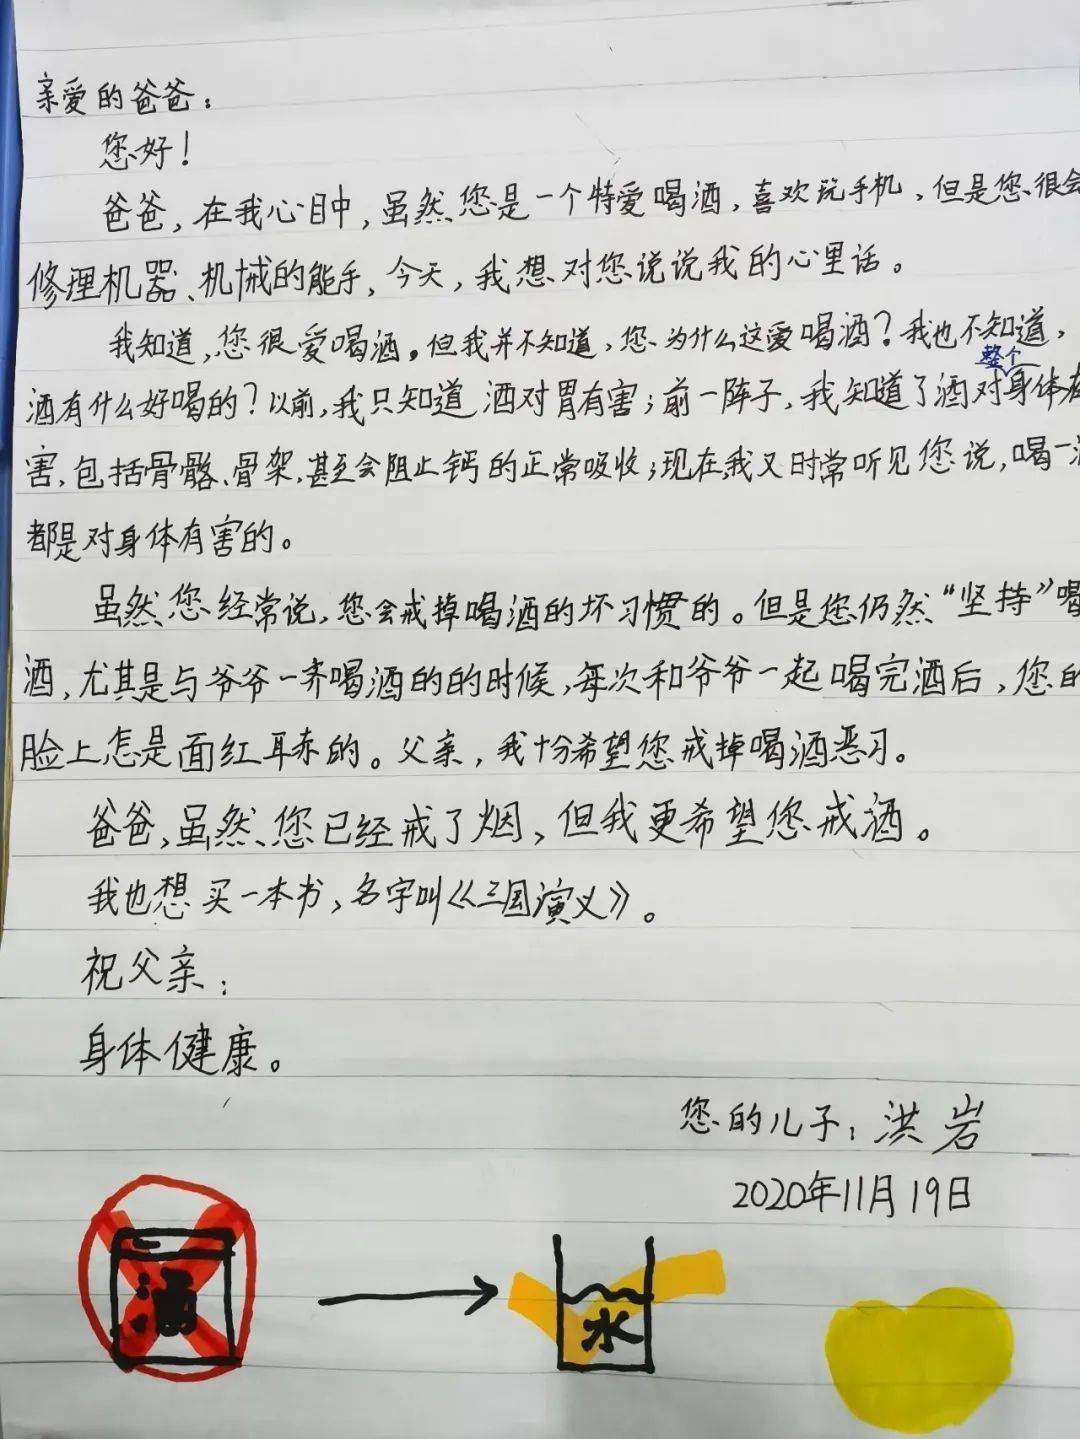 亲爱的爸爸：
您好！
爸爸，在我心目中，虽然您是一个特爱喝酒，喜欢玩手机，但是您很会
修理机器、机械的能手，今天，我想对您说说我的心里话。
我知道，您很爱喝酒。但我并不知道，您为什么这爱喝酒？我也不知道，
酒有什么好喝的？以前，我只知道酒对胃有害；前一阵子，我知道了酒对整个身体有
害，包括骨骼、骨架，甚至会阻止钙的正常吸收；现在，我又时常听见您说，喝一
都是对身体有害的。
虽然您经常说，您会戒掉喝酒的坏习惯的。但是您仍然“坚持”喝
酒，尤其是与爷爷一齐喝酒的的时候，每次和爷爷一起喝完酒后，您的
脸上怎是面红耳赤的。父亲，我十分希望您戒掉喝酒恶习。
爸爸，虽然您已经戒了烟，但我更希望您戒酒。
我也想买一本书，名字叫《三国演义》。
祝父亲：
身体健康。
您的儿子：洪岩
2020年11月19日
酒
水